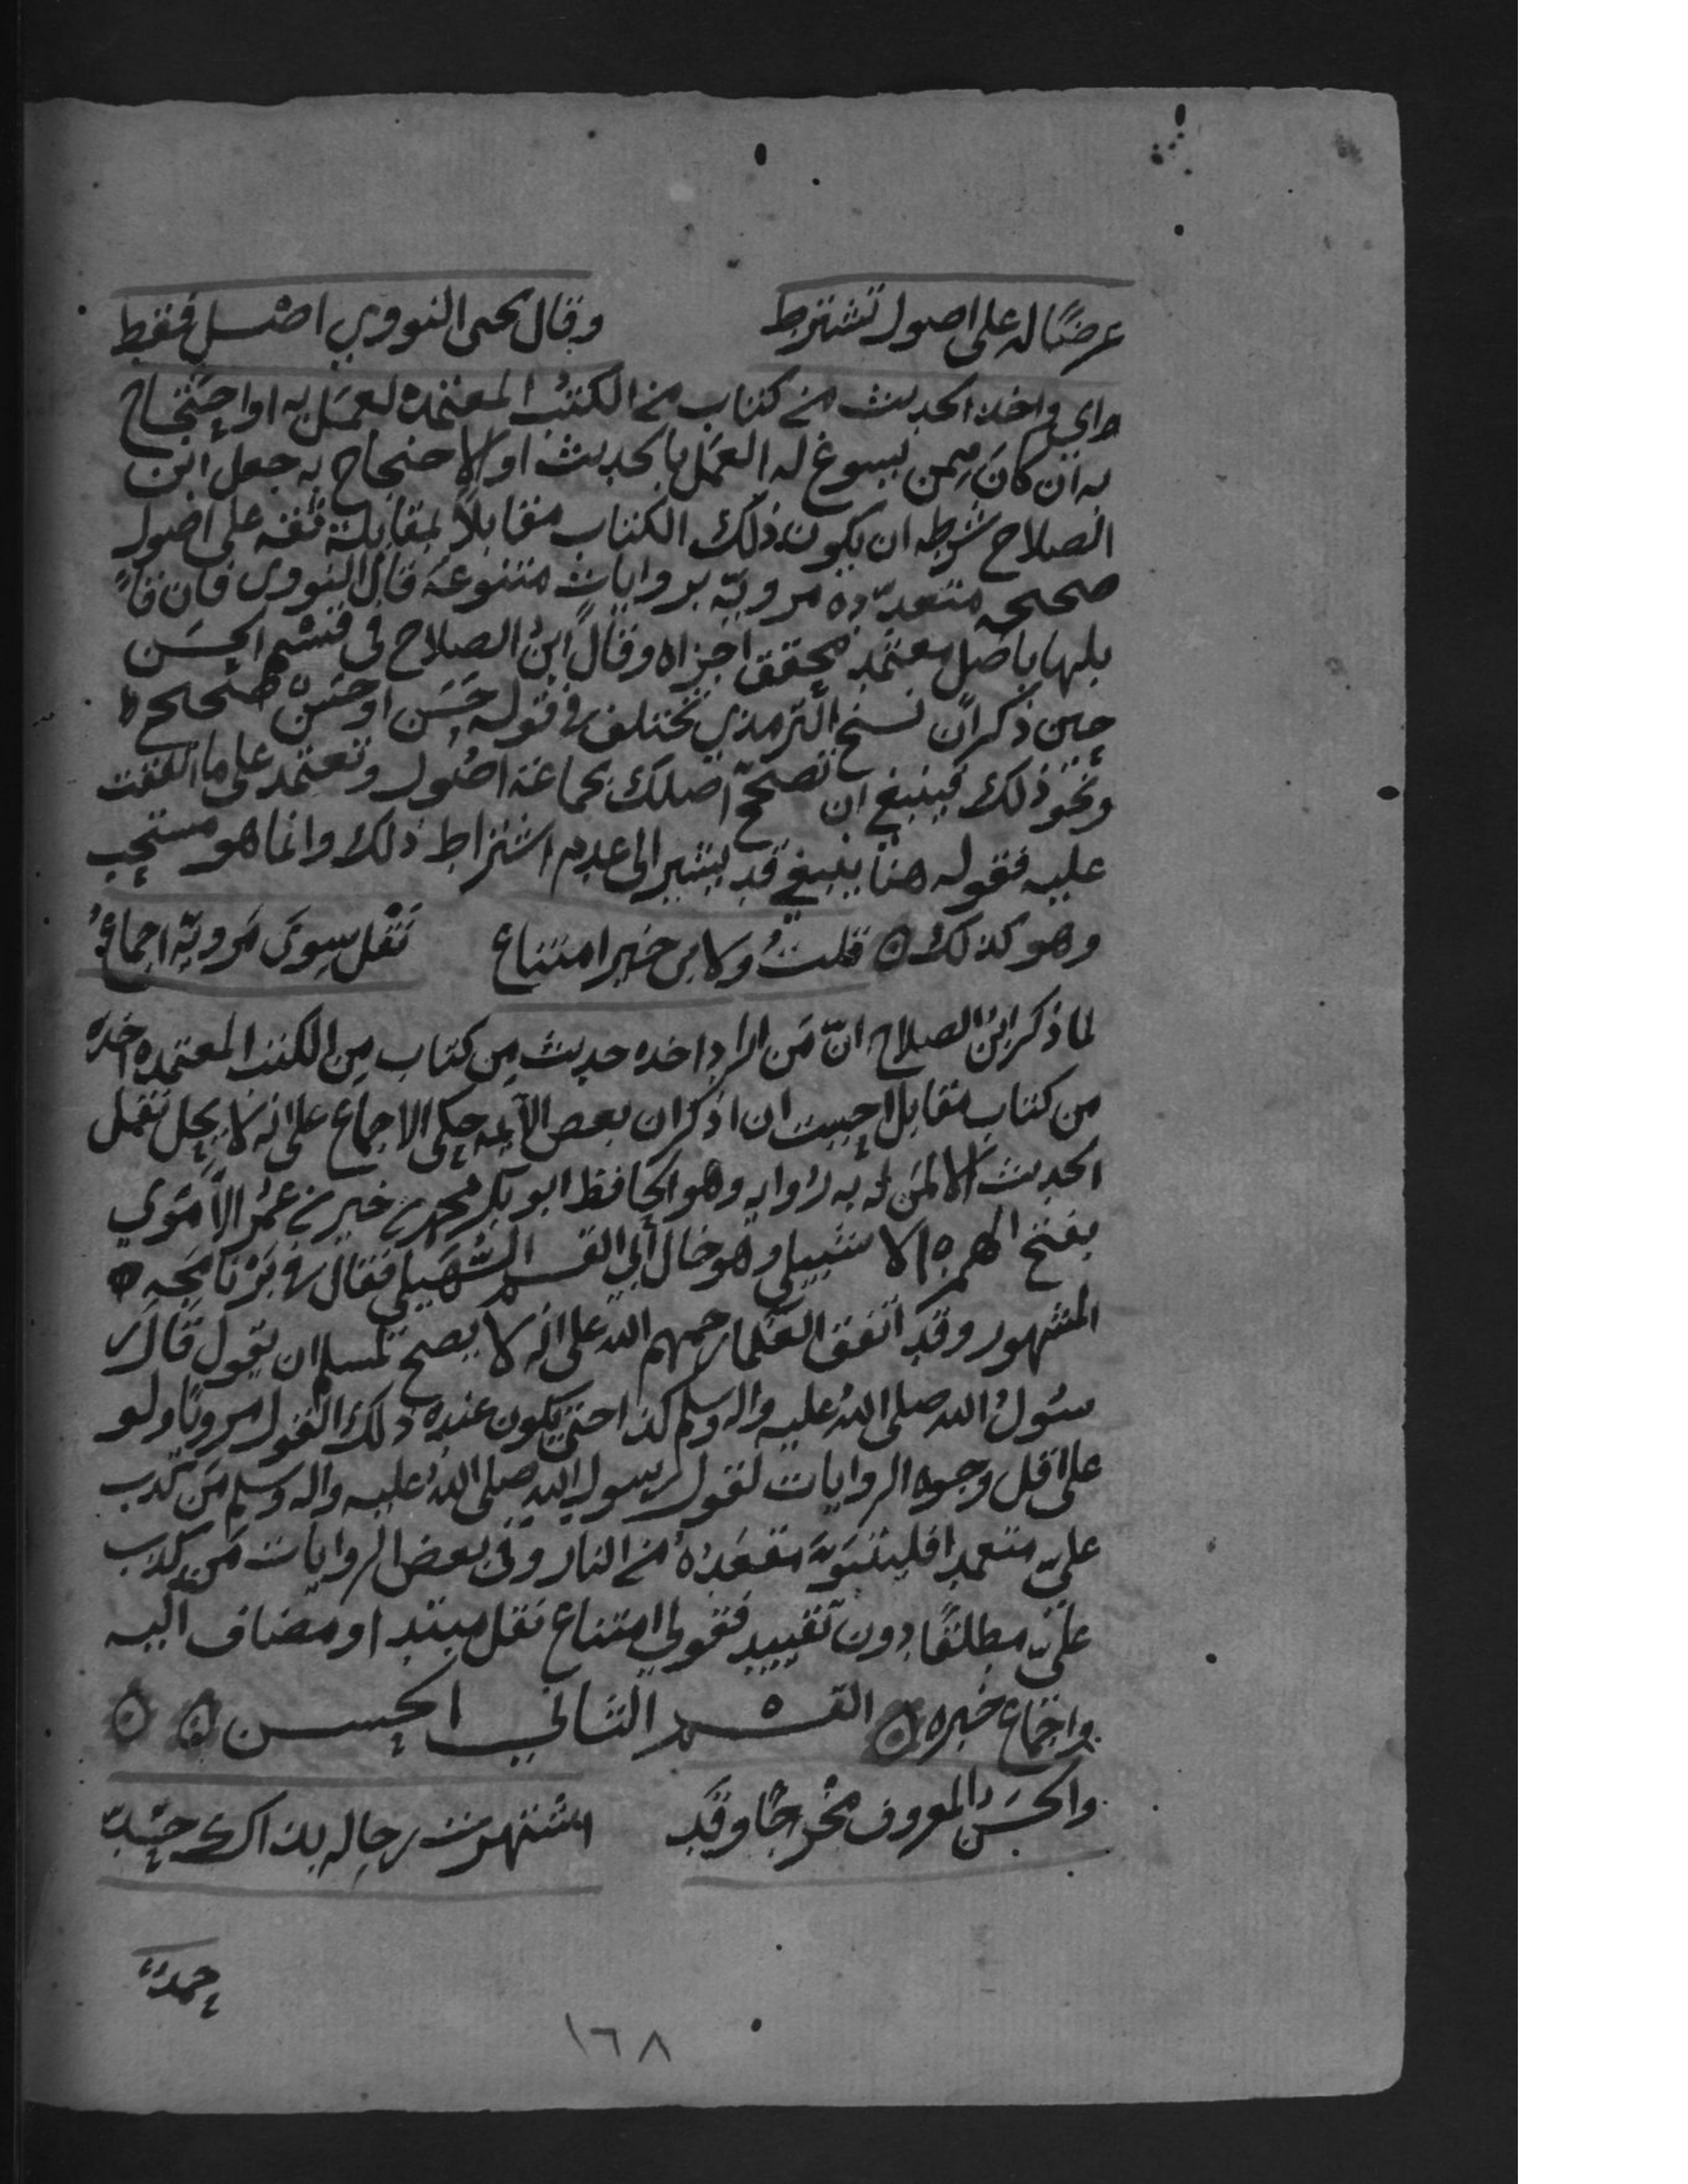 عرضًا له على اصول تشترط وقال يحيى النووي اصل فقط
واي واخذ الحديث من كتاب من الكتب المعتمده لعمل به او احتجاج
به ان كان ممن يسوغ له العمل بالحديث او الاحتجاج به جعل ابن
الصلاح شرطه ان يكون ذلك الكتاب مقابلًا بمقابلة ثقه على اصول
صحيحه متعدّده مرويّه بروايات متنوعه قال النووي فان قا
بلها باصل معتمد محقق اجزاه وقال ابن الصلاح في قسم الحسن
حين ذكر ان نسخ الترمذي تختلف في قوله حسن او حسن صحيح
ونحو ذلك فينبغي ان تصحح اصلك بجماعة اصول وتعتمد على ما اتفقت
عليه فقوله هنا ينبغي قد يشير الى عدم اشتراط ذلك وانما هو مستحب
وهو كذلك ۞ قلت ولابن خير امتناع نقل سوى مرويّه اجماع
لما ذكر ابن الصلاح انّ من اراد اخذه حديث من كتاب من الكتب المعتمده اخذه
من كتاب مقابل احببت ان اذكر ان بعض الأئمه حكى الاجماع على انه لا يحل نقل
الحديث الا لمن له به روايه وهو الحافظ ابو بكر محمد بن خير بن عمر الأموي
بفتح الهمزه الاشبيلي وهو خال أبي القسم السهيلي فقال في برنامجه
المشهور وقد اتفق العلما رحمهم الله على انه لا يصح لمسلم ان يقول قال ر
سول الله صلى الله عليه واله وسلم كذا حتى يكون عنده ذلك القول مرويًا ولو
على اقل وجوه الروايات لقول رسول الله صلى الله عليه واله وسلم من كذب
عليّ متعمدا فليتبوّء مقعده من النار وفي بعض الروايات من كذب
عليّ مطلقًا دون تقييد فقولي امتناع نقل مبتدا ومضاف اليه
واجماع خبره ۞ القسم الثاني الحسن ۞ ۞
والحسن المعروف مخرجًا وقد اشتهرت رجاله بذاك حدّ
حمدٌ
١٦٨